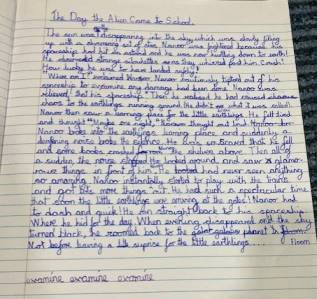 The Day the Alien Came to School.
The sun was disappearing into the sky which was slowly filing
up with a shimmering set of stars. Nanoo was frightened because his
spaceship had hit an asteroid and he was now hurtling down to earth!
He observed strange silhouettes as they whizzed past him. Crash!
How lucky he was to have landed safely!
"Where am I?" exclaimed Nanoo. Nanoo cautiously tiptoed out of his
spaceship to examine any damage had been done. Nanoo was
relieved that his spaceship was ok he noticed he had missed
the earthlings running around. He didn't what it was called!
Nanoo then saw a learning place for the little earthlings. He felt tired
and thought "Maybe one night," Nanoo thought and
Nanoo broke into the earthlings learning place and suddenly a
deafening noise broke the silence. He was so scared that he fell
and some books crashed from the shelves above. Then all of
a sudden, the noise stopped. He looked around and saw
things in front of him. He had never seen anything
so amazing. Nanoo instantly started to play with the trains
and got lots more things out. He had such a spectacular time
that soon the little earthlings were arriving at the gates! Nanoo had
to dash and quick! He ran straight back to his spaceship
Where he hid for the day. When evening disappeared and the sky
turned black, he zoomed back to the planet
Not before leaving a little suprise for the little earthlings....
examine examine examine